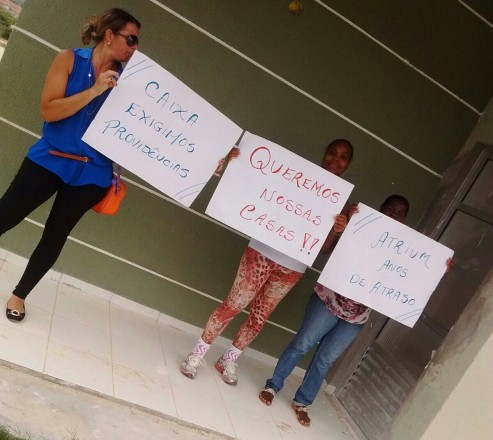 CAIXA
EXIGIMOS
PROVIDÊNCIAS
QUEREMOS
NOSSAS
CASAS !!
ATRIUM
ANOS
DE ATRASO